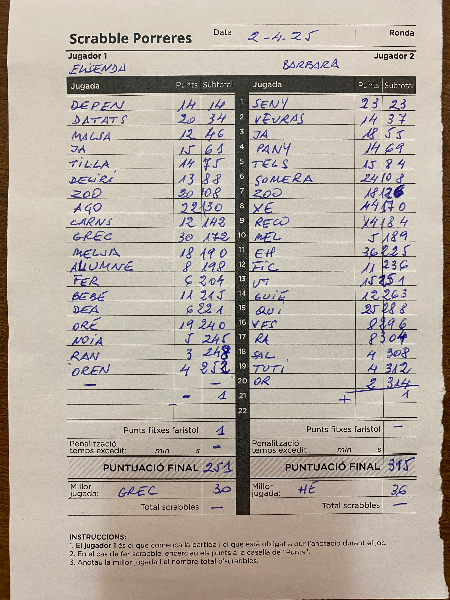 Scrabble Porreres Data 2-4-25 Ronda
Jugador 1 Jugador 2
ELISENDA BARBARA
Jugada Punts Subtotal Jugada Punts Subtotal
DEPEN 14 14 1 SENY 23 23
DATATS 20 34 2 VEURAS 14 37
MALSA 12 46 3 JA 18 55
JA 15 61 4 PANY 14 69
TILLA 14 75 5 TELS 15 84
DELIRI 13 88 6 SOMERA 24 108
ZOO 20 108 7 ZOO 18 126
AGO 22 130 8 XE 44 170
CARNS 12 142 9 RECO 14 184
GREC 30 172 10 MEL 5 189
MELJA 18 190 11 EH 36 225
ALUMNE 8 198 12 FIC 11 236
FER 6 204 13 UT 15 251
BEBE 11 215 14 GUIE 12 263
DEA 6 221 15 QUI 25 288
ORE 19 240 16 VES 8 296
NOIA 5 245 17 RA 8 304
RAN 3 248 18 SAL 4 308
OREN 4 252 19 TUTI 4 312
— — 20 OR 2 314
- 1 21 + 1
22
Punts fitxes faristol 1 Punts fitxes faristol —
Penalització Penalització
temps excedit: min s — temps excedit: min s
PUNTUACIÓ FINAL 251 PUNTUACIÓ FINAL 315
Millor Millor
jugada: GREC 30 jugada: HE 36
Total scrabbles — Total scrabbles —
INSTRUCCIONS:
1. El jugador 1 és el que comença la partida i el que està obligat a dur l'anotació durant el joc.
2. En el cas de fer scrabble, encerclau els punts a la casella de "Punts".
3. Anotau la millor jugada i el nombre total d'scrabbles.